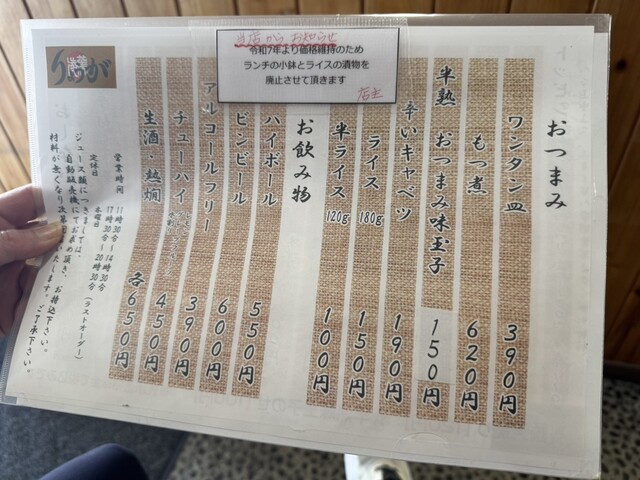 当店からお知らせ
令和7年より価格維持のため
ランチの小鉢とライスの漬物を
廃止させて頂きます
店主
おつまみ
ワンタン皿 390円
もつ煮 620円
半熟 おつまみ味玉子 150円
辛いキャベツ 190円
ライス 180g 150円
半ライス 120g 100円
お飲み物
ハイボール 550円
ビンビール 600円
アルコールフリー 390円
チューハイ 450円
生酒・熱燗 各650円
営業時間 11時30分～14時30分
17時30分～20時30分（ラストオーダー）
定休日 木曜日
ジュース類につきましては、
自動販売機にてお求め頂き、お持込下さい。
材料が無くなり次第
ご了承下さい。